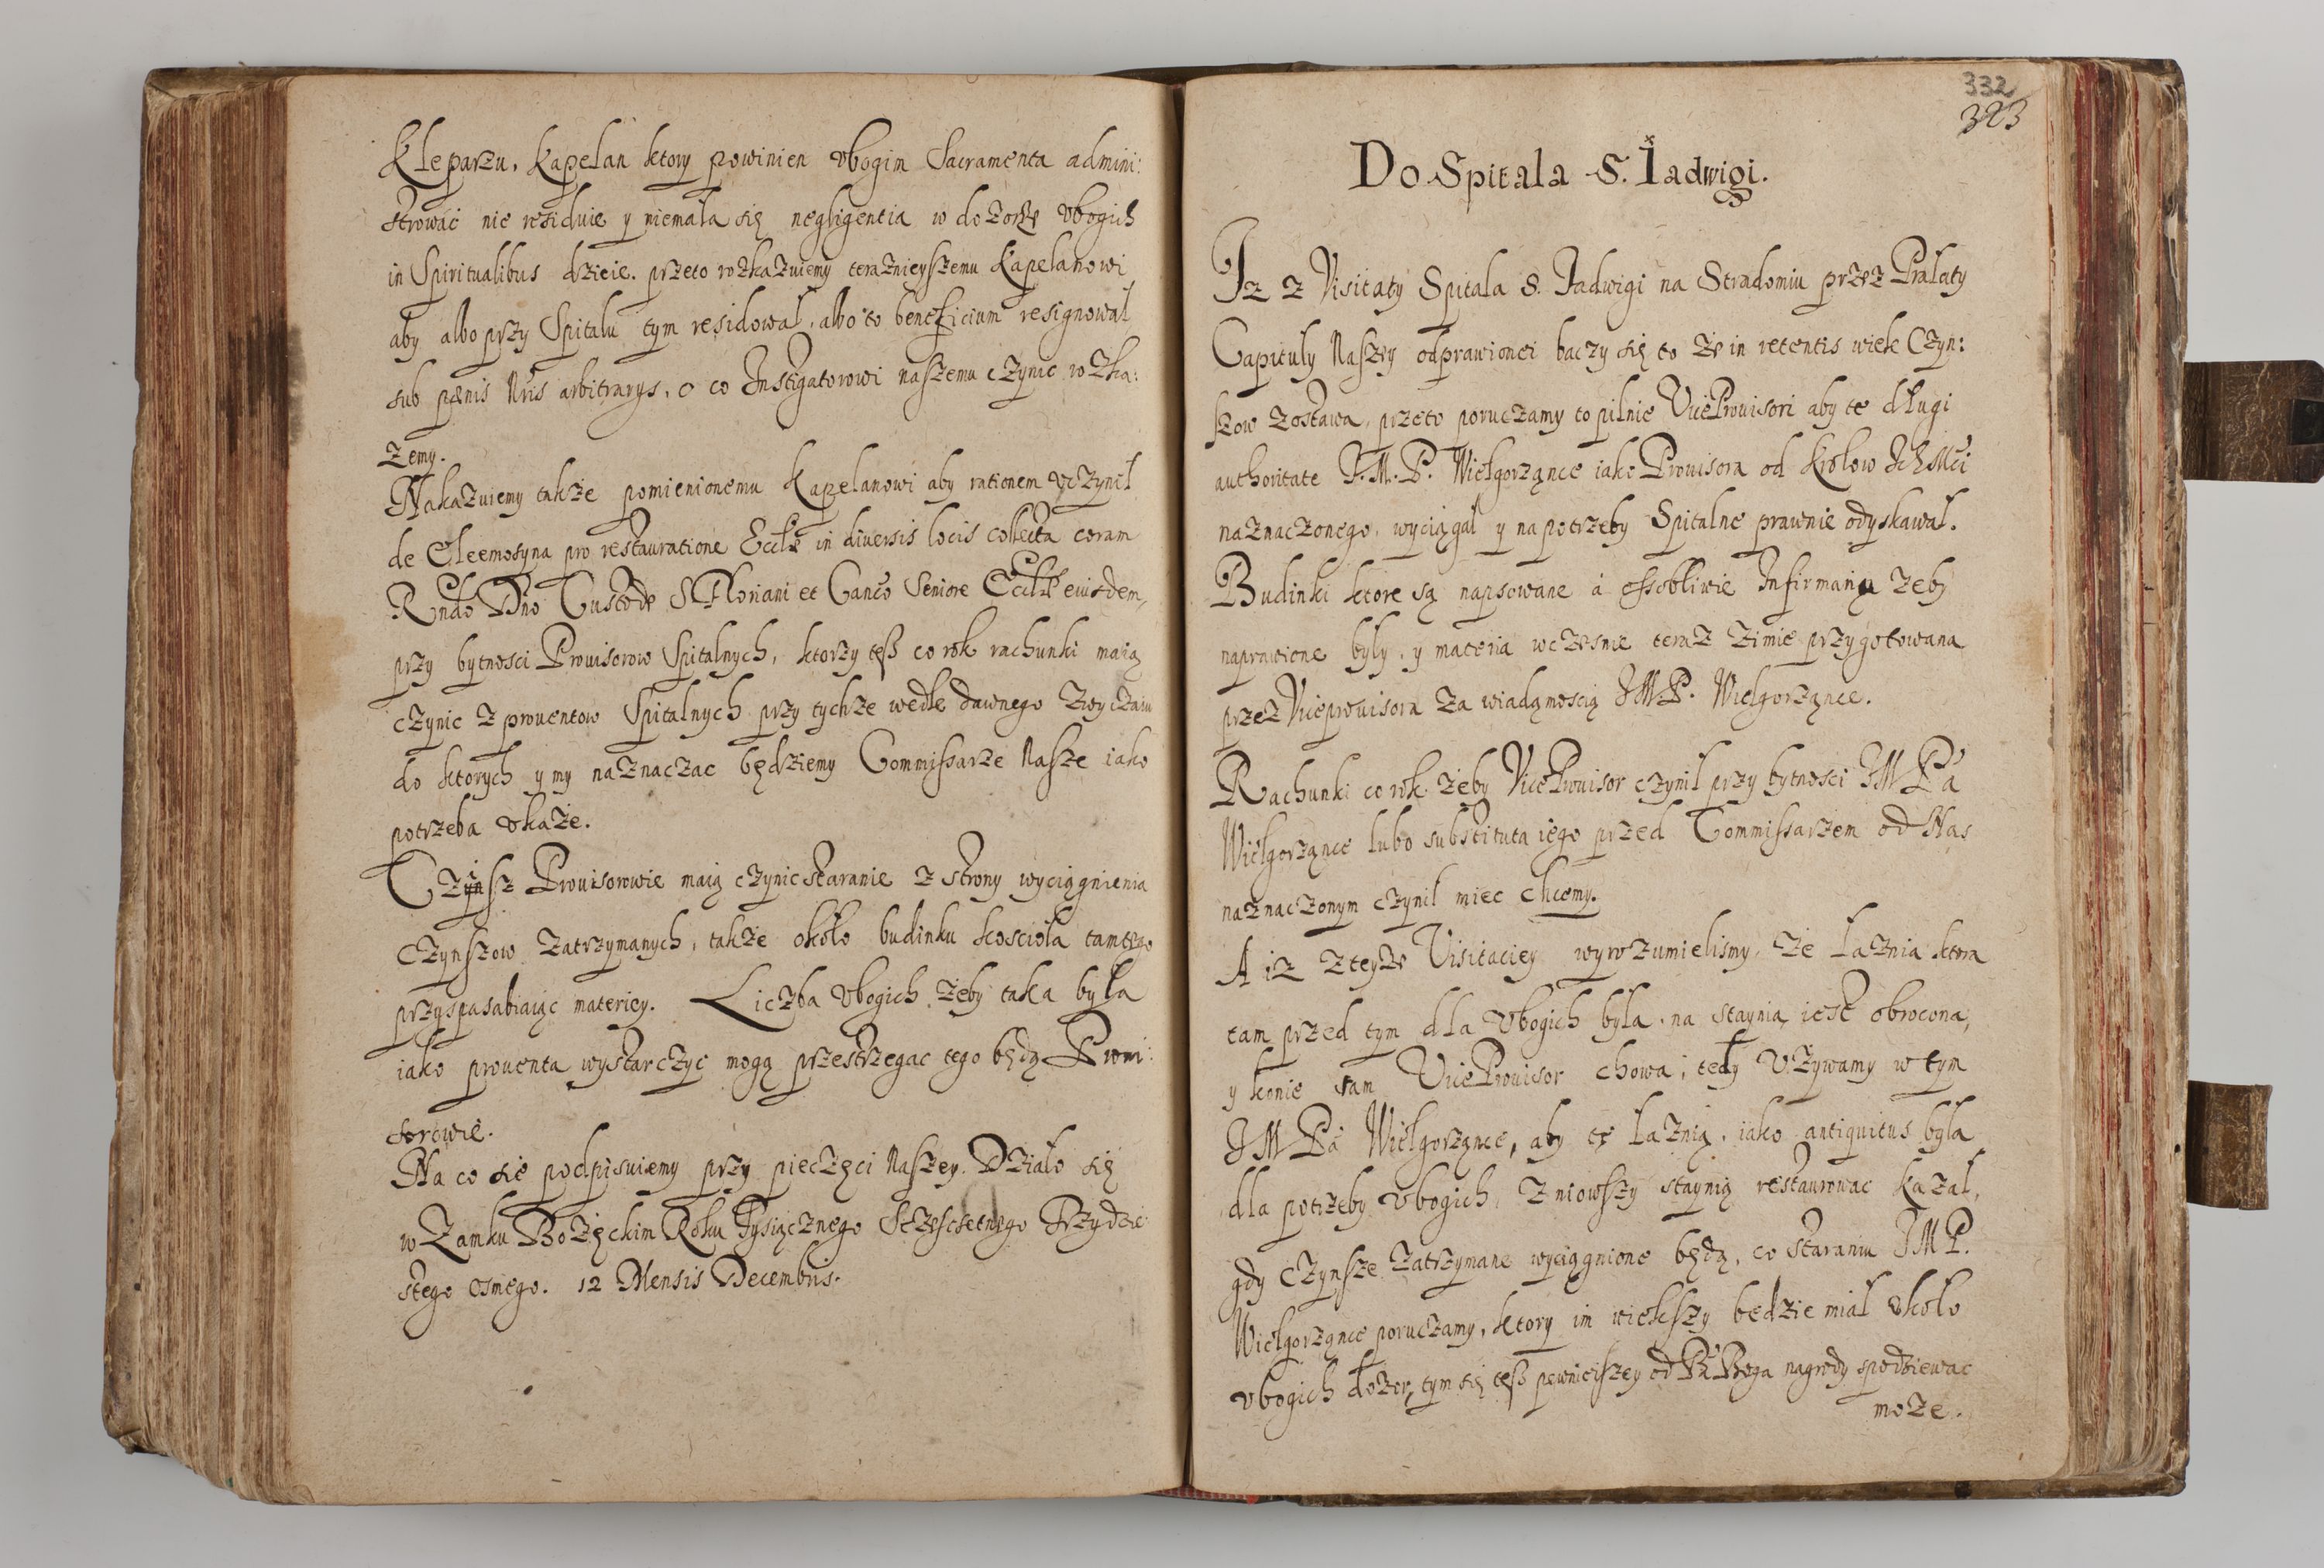 Kleparzu, Kapelan ktory powinien vbogim Sacramenta admini:
strować nie residuie y niemała się negligentia w dozorze vbogich
in Spiritualibus dzieie. przeto rozkazuiemy teraznieyszemu Kapelanowi
aby albo przy Spitalu tym residował, albo to beneficium resignował
sub pænis Nris arbitrarys, o co Instigatorowi naszemu czynic rozka:
zemy.
Nakazuiemy także pomienionemu Kapelanowi aby rationem vczynił
de Eleemosyna pro restauratione Eccłæ in diuersis locis collecta coram
Rndo Dno Custode S Floriani et Canco Seniore Eccłæ eiusdem,
przy bytnosci Prouisorow Spitalnych, ktorzy teß co rok rachunki maią
czynic z prouentow Spitalnych przy tychze wedle dawnego zwyczaiu
do ktorych y my naznaczac będziemy Commissarze Nasze iako
potrzeba vkaże.
Czynsz Prouisorowie maią czynic staranie z strony wyciągnienia
czynszow zatrzymanych, także około budinku kosciola tamtego
przyspasabiaiąc materiey. Liczba vbogich żeby taka była
iako prouenta wystarczyć mogą przestrzegac tego będą Proui:
sorowie.
Na co sie podpisuiemy przy pieczęci Naszey. Działo się
w Zamku Bożęckim Roku Tysiącznego Sczescsetnego Trzydzie
stego osmego. 12 Mensis Decembris.
332
323
Do Spitala S. Iadwigi.
Iz z Visitaty Spitala S. Iadwigi na Stradomiu przez Prałaty
Capituly Naszey odprawionei baczy się to że in retentis wiele Czyn:
szow zostawa, przeto poruczamy to pilnie ViceProuisori aby te długi
authoritate J.M.P. Wielgorządce iako Prouisora od Krolow Ich Mći
naznaczonego, wyciągał y na potrzeby Spitalne prawnie odyskawał.
Budinki ktore są napsowane á ossobliwie Infirmaria żeby
naprawione były, y materia wczesnie teraz zimie przygotowana
przez Viceprouisora za wiadomoscią JMP. Wielgorządce.
Rachunki co rok żeby ViceProuisor czynił przy bytnosci JMPá
Wielgorządce lubo substituta iego przed Commissarzem od Nas
naznaczonym czynil miec chcemy.
A iż z teyże Visitaciey wyrozumielismy, że Łaznia ktora
tam przed tym dla Vbogich była, na staynią iest obrocona,
y konie tam ViceProuisor chowa, tedy Vżywamy w tym
JMPá Wielgorządce, aby tę Łaznią, iako antiquitus była
dla potrzeby Vbogich, zniowszy staynią restaurowac kazał,
gdy Czynsze zatrzymane wyciągnione będą, co staraniu JMP.
Wielgorządce poruczamy, ktory im wiekszy bedzie miał około
vbogich dozor, tym się teß pewnieiszey od Pá Boga nagrody spodziewac
może.